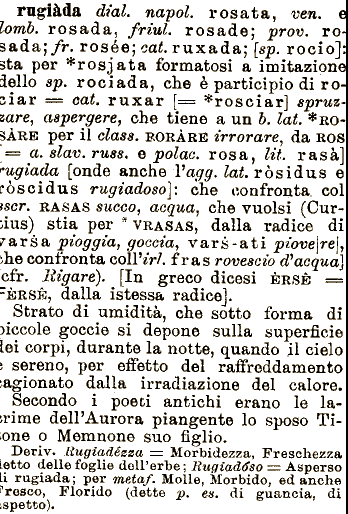 rugiàda dial. napol. rosata, ven. e
lomb. rosada, friul. rosade; prov. ro-
sada; fr. rosée; cat. ruxada; [sp. rocio]:
sta per *rosjata formatosi a imitazione
dello sp. rociada, che è participio di ro-
ciar = cat. ruxar [= *rosciar] spruz-
zare, aspergere, che tiene a un b. lat. *RO-
SÀRE per il class. RORÀRE irrorare, da ROS
[= a. slav. russ. e polac. rosa, lit. rasà]
rugiada [onde anche l'agg. lat. ròsidus e
ròscidus rugiadoso]: che confronta col
sscr. RASAS succo, acqua, che vuolsi (Cur-
tius) stia per *VRASAS, dalla radice di
varśa pioggia, goccia, varś-ati piove[re],
che confronta coll'irl. fras rovescio d'acqua]
(cfr. Rigare). [In greco dicesi ÈRSÊ =
FÈRSÊ, dalla istessa radice].
Strato di umidità, che sotto forma di
piccole goccie si depone sulla superficie
dei corpi, durante la notte, quando il cielo
è sereno, per effetto del raffreddamento
cagionato dalla irradiazione del calore.
Secondo i poeti antichi erano le la-
crime dell'Aurora piangente lo sposo Ti-
tone o Memnone suo figlio.
Deriv. Rugiadézza = Morbidezza, Freschezza
detto delle foglie dell'erbe; Rugiadóso = Asperso
di rugiada; per metaf. Molle, Morbido, ed anche
Fresco, Florido (dette p. es. di guancia, di
aspetto).